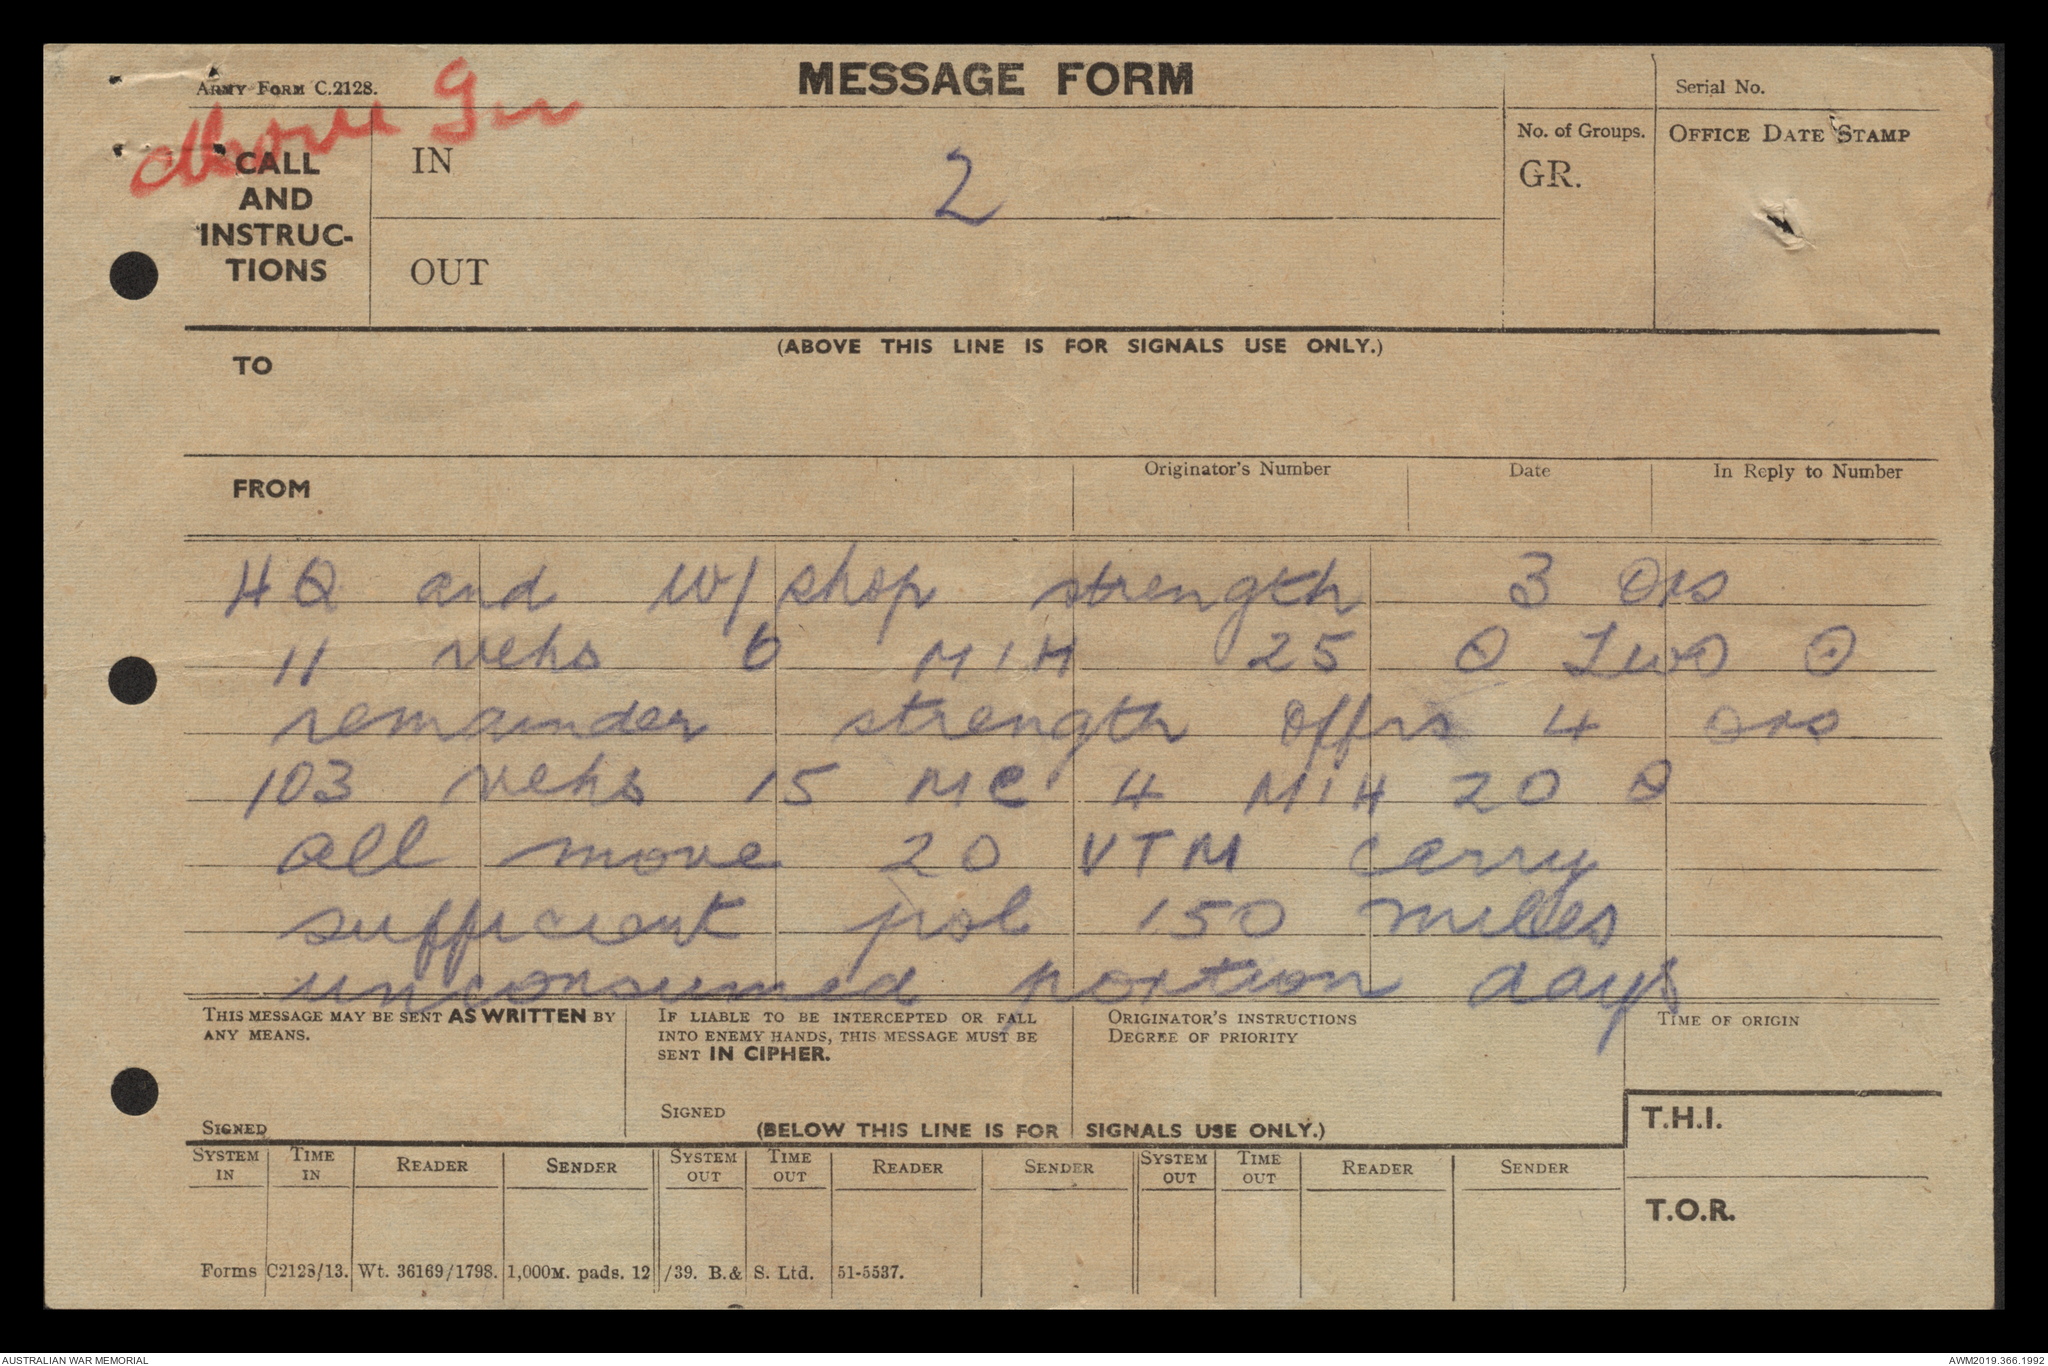 ARMY FORM C.2128.
MESSAGE FORM
Serial No.
CALL
AND
INSTRUC-
TIONS
IN
2
OUT
No. of Groups.
GR.
OFFICE DATE STAMP
(ABOVE THIS LINE IS FOR SIGNALS USE ONLY.)
TO
FROM
Originator's Number
Date
In Reply to Number
HQ and W/shop strength 3 Ors
11 vehs 6 MIH 25 O Two O
remainder strength offrs 4 ors
103 vehs 15 MC 4 MIH 20 O
all move 20 VTM carry
sufficient pol 150 miles
unconsumed portion days
THIS MESSAGE MAY BE SENT AS WRITTEN BY
ANY MEANS.
SIGNED
IF LIABLE TO BE INTERCEPTED OR FALL
INTO ENEMY HANDS, THIS MESSAGE MUST BE
SENT IN CIPHER.
SIGNED
ORIGINATOR'S INSTRUCTIONS
DEGREE OF PRIORITY
TIME OF ORIGIN
(BELOW THIS LINE IS FOR SIGNALS USE ONLY.)
T.H.I.
SYSTEM IN
TIME IN
READER
SENDER
SYSTEM OUT
TIME OUT
READER
SENDER
SYSTEM OUT
TIME OUT
READER
SENDER
T.O.R.
Forms C2128/13. Wt. 36169/1798. 1,000M. pads. 12/39. B.& S. Ltd. 51-5537.
AUSTRALIAN WAR MEMORIAL
AWM2019.366.1992